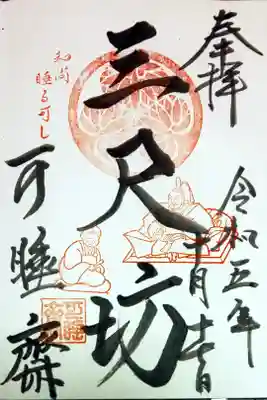 奉拝
令和五年
十月吉日
三尺坊
和尚
睡る可し
可睡齋